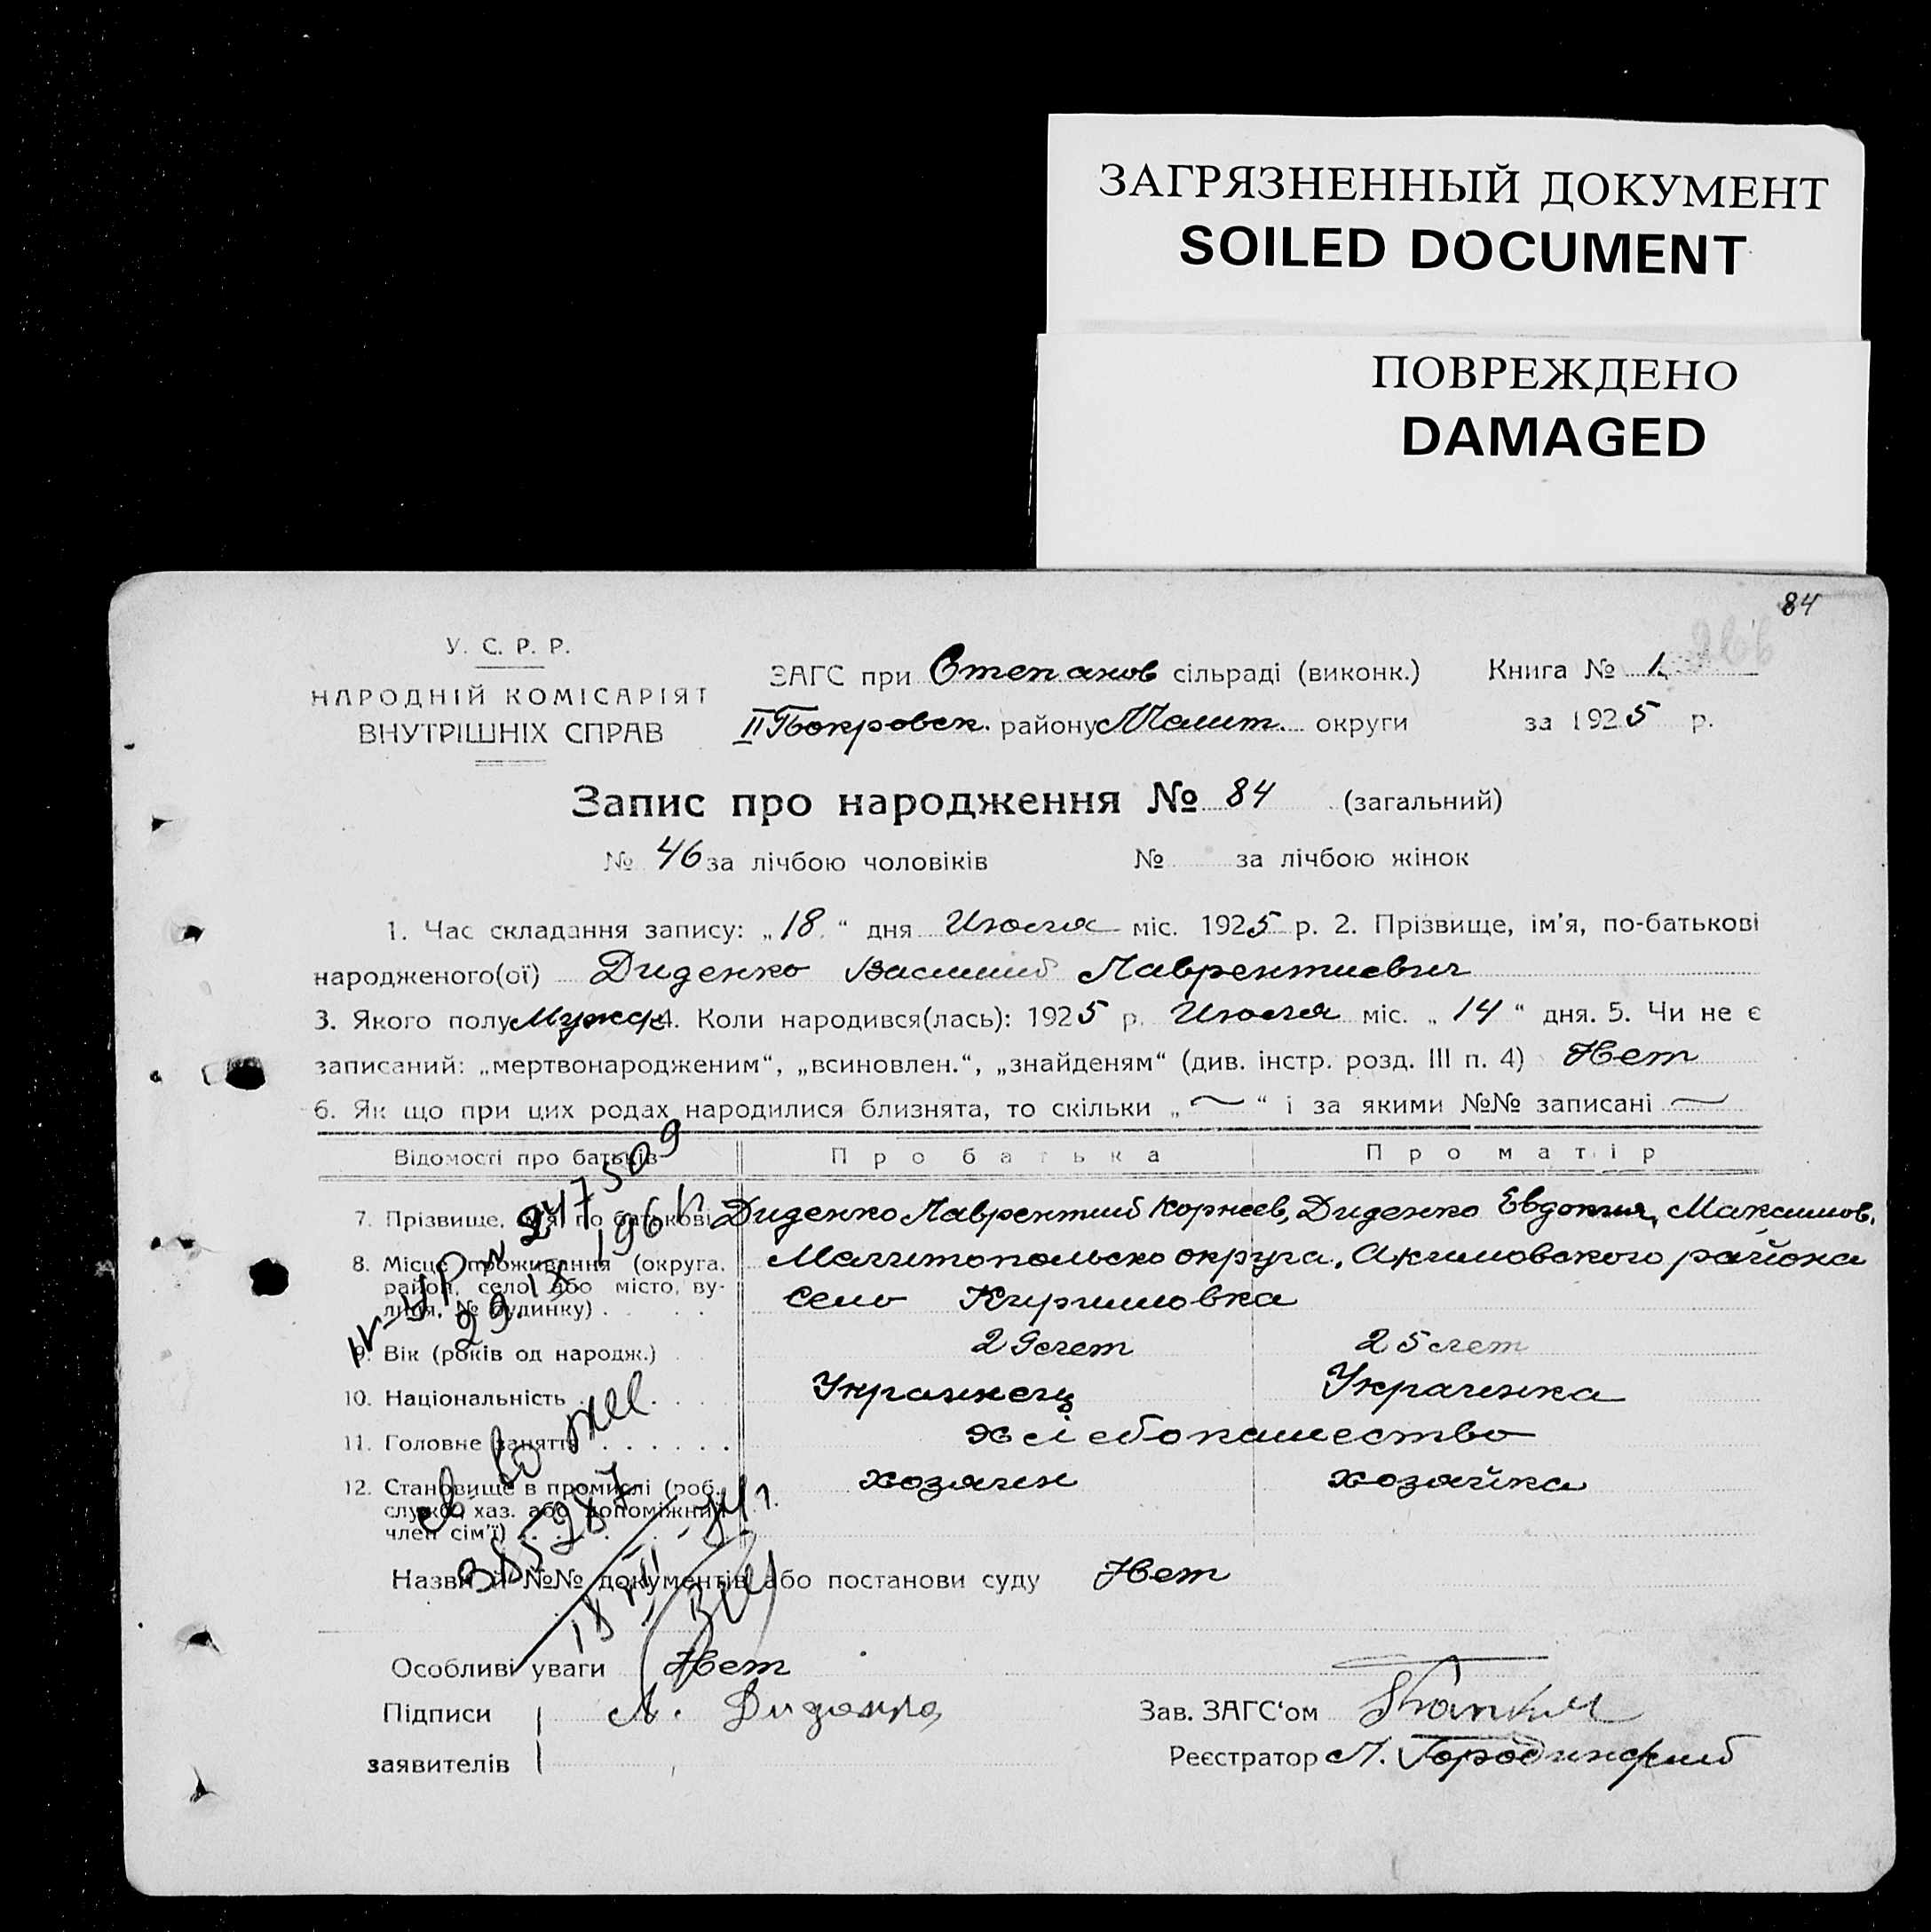 ЗАГРЯЗНЕННЫЙ ДОКУМЕНТ
SOILED DOCUMENT
ПОВРЕЖДЕНО
DAMAGED
84
У. С. Р. Р.
НАРОДНІЙ КОМІСАРІЯТ
ВНУТРІШНІХ СПРАВ
ЗАГС при Степанов сільраді (виконк.) Книга № 1
II Покровск. району Мелит. округи за 1925 р.
Запис про народження № 84 (загальний)
№ 46 за лічбою чоловіків № за лічбою жінок
1. Час складання запису: „18“ дня Июля міс. 1925 р. 2. Прізвище, ім'я, по-батькові
народженого(ої) Диденко Василий Лаврентиевич
3. Якого полу Мужск 4. Коли народився(лась): 1925 р. Июля міс. „14“ дня. 5. Чи не є
записаний: „мертвонародженим“, „всиновлен.“, „знайденям“ (див. інстр. розд. III п. 4) Нет
6. Як що при цих родах народилися близнята, то скільки „~“ і за якими №№ записані ~
Відомості про батьків Про батька Про матір
7. Прізвище, ім'я, по батькові Диденко Лаврентий Корнеев, Диденко Евдокия, Максимов.
8. Місце проживання (округа, Мелитопольско округа, Акимовского района
район, село або місто, ву-
лиця, № будинку) . . . село Кирилловка
9. Вік (років од народж.) 29 лет 25 лет
10. Національність . . . . Украинец Украинка
11. Головне заняття . . . . . . Хлебопашество
12. Становище в промислі (роб. хозяин хозяйка
службо. хаз. або допоміжний
член сім'ї)
IV-УР № 247509
29. IX 196
385287
18 VII
Назви й №№ документів або постанови суду Нет
Особливі уваги Нет
Підписи Л. Диденко Зав. ЗАГС'ом
заявителів Реєстратор Л. Городинский